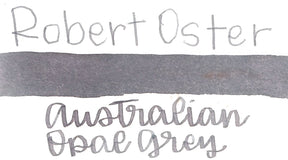 Robert Oster
australian
opal grey